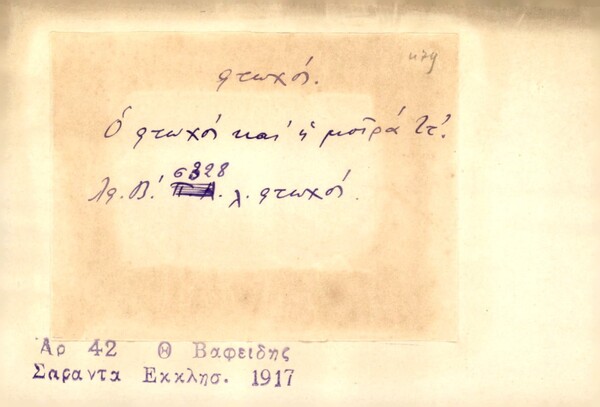 479
φτωχός.
Ὁ φτωχός καὶ ἡ μοῖρά τ'.
Λα. Β.' 6328
λ. φτωχός.
Ἀρ 42 Θ Βαφειδης
Σαραντα Εκκλησ. 1917